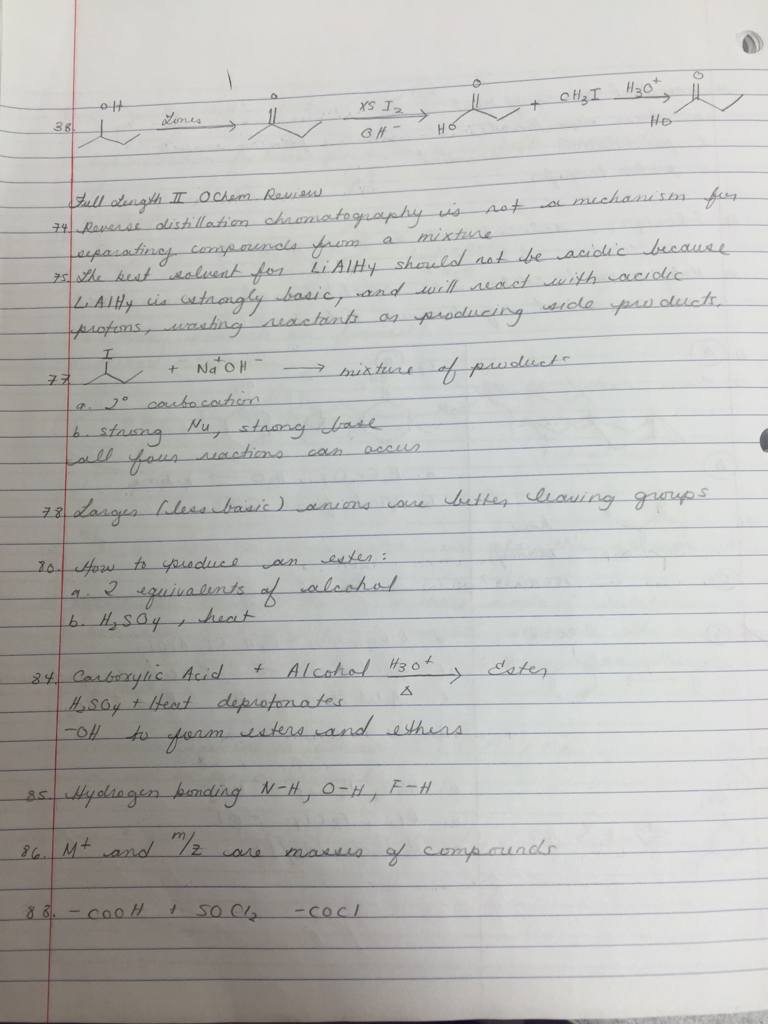 38. OH Jones O XS I2 OH- O HO + CH3I H3O+ O HO
Full Length II OChem Review
74. Reverse distillation chromatography is not a mechanism for
separating compounds from a mixture
75. The best solvent for LiAlH4 should not be acidic because
LiAlH4 is strongly basic, and will react with acidic
protons, wasting reactants or producing side products.
77. I + Na+OH- → mixture of products
a. 2° carbocation
b. strong Nu, strong base
all four reactions can occur
78. Larger (less basic) anions are better leaving groups
80. How to produce an ester:
a. 2 equivalents of alcohol
b. H2SO4, heat
84. Carboxylic Acid + Alcohol H3O+ Δ → Ester
H2SO4 + Heat deprotonates
-OH to form esters and ethers
85. Hydrogen bonding N-H, O-H, F-H
86. M+ and m/z are masses of compounds
88. -COOH + SOCl2 -COCl